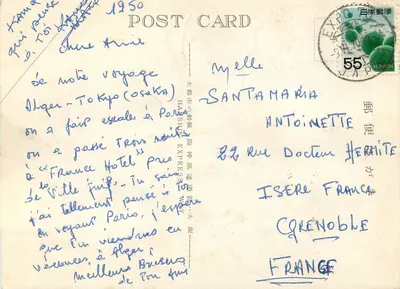 1950
POST CARD
Chère Amie
de notre voyage
Alger-Tokyo (OSAKA)
on a fait escale à Paris
on a passé Trois nuits
à "France Hotel" Près
de la Ville
j'ai tellement pensé à Toi
en voyant Paris, j'espère
que Tu viendras en
vacances à Alger!
Meilleurs Baisers
de Ton Ami
HANSHIN EXPRESS WAY
日本郵便
55
NIPPON
EXPO
JAPAN
郵便はがき
Melle
SANTAMARIA
ANTOINETTE
22 Rue Docteur HERMITE
ISERE FRANCE
GRENOBLE
FRANCE